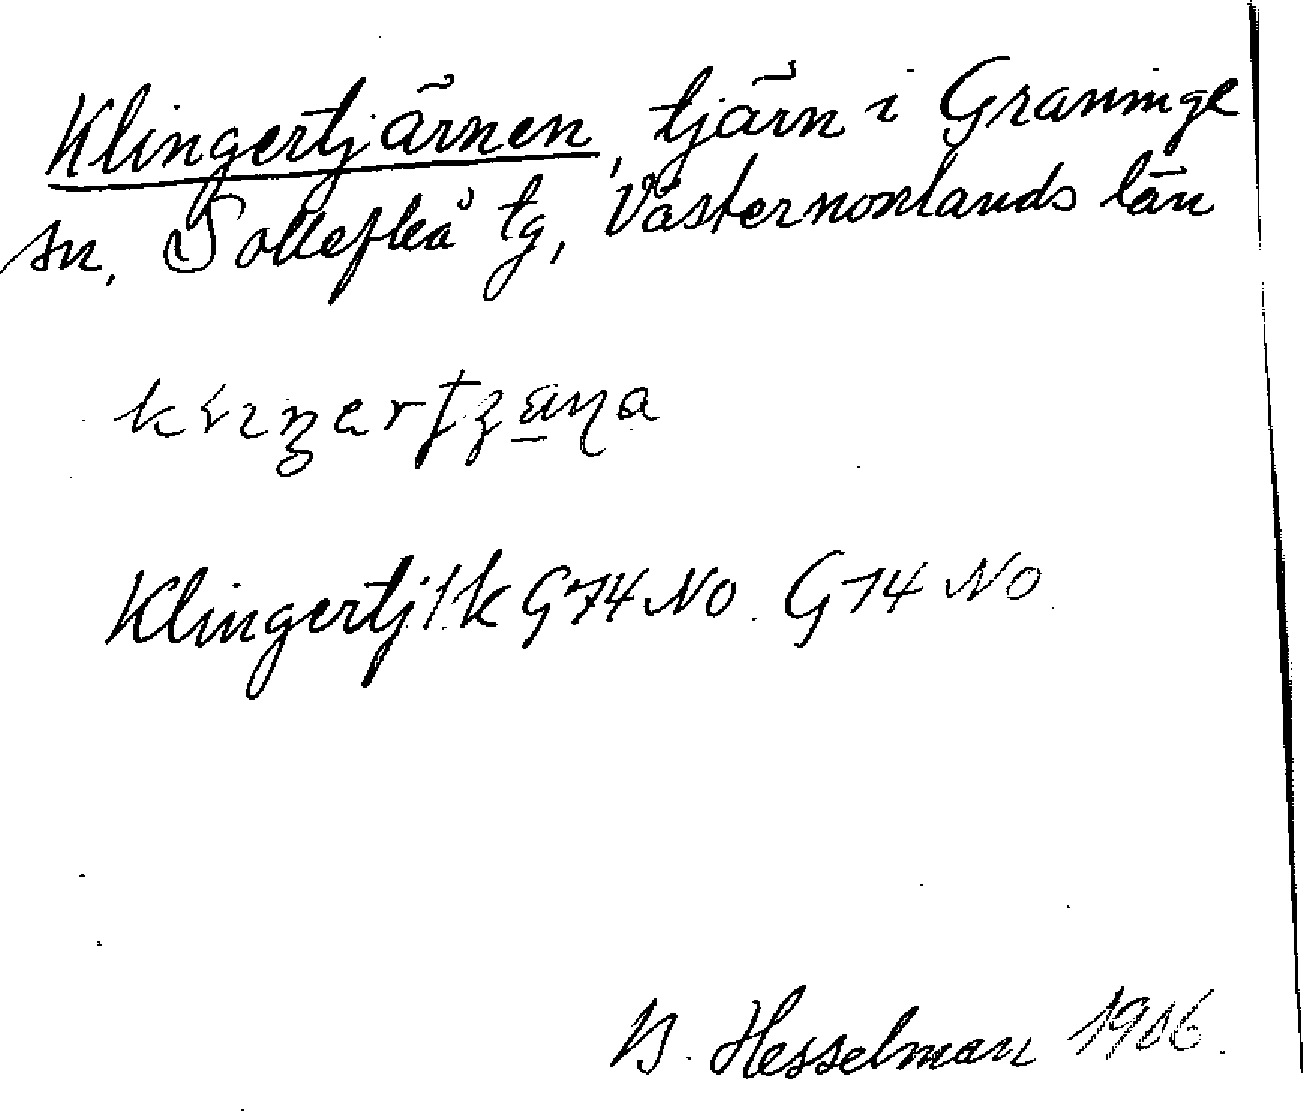 Klingertjärnen, tjärn i Graninge
sn, Sollefteå tg, Västernorrlands län
Klingertj 1k G74No. G74 No
B. Hesselman 1906.